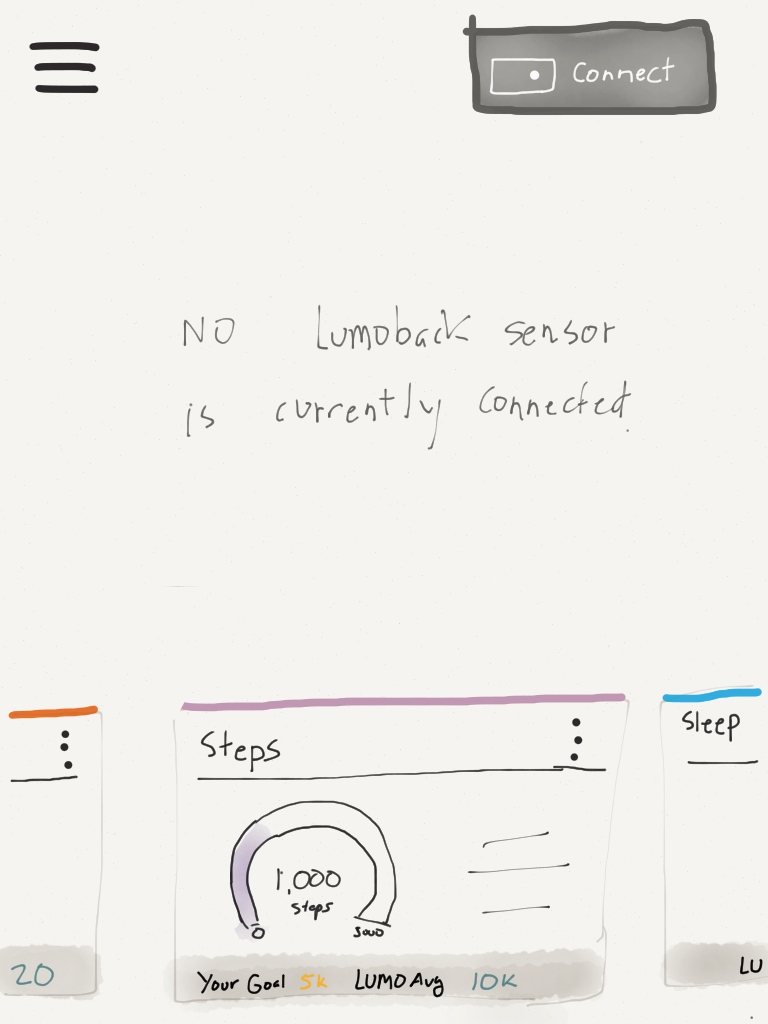 Connect
NO Lumoback sensor
is currently connected.
Steps
Sleep
1,000
steps
0
5000
20
Your Goal 5k LUMO Avg 10K
LU